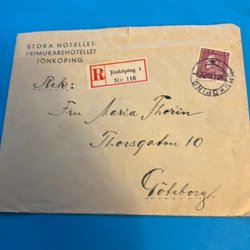 STORA HOTELLET-
FRIMURAREHOTELLET
JÖNKÖPING
Rek:
R
Jönköping 1
No 116
Fru Maria Thorin
Thorsgatan 10
Göteborg.